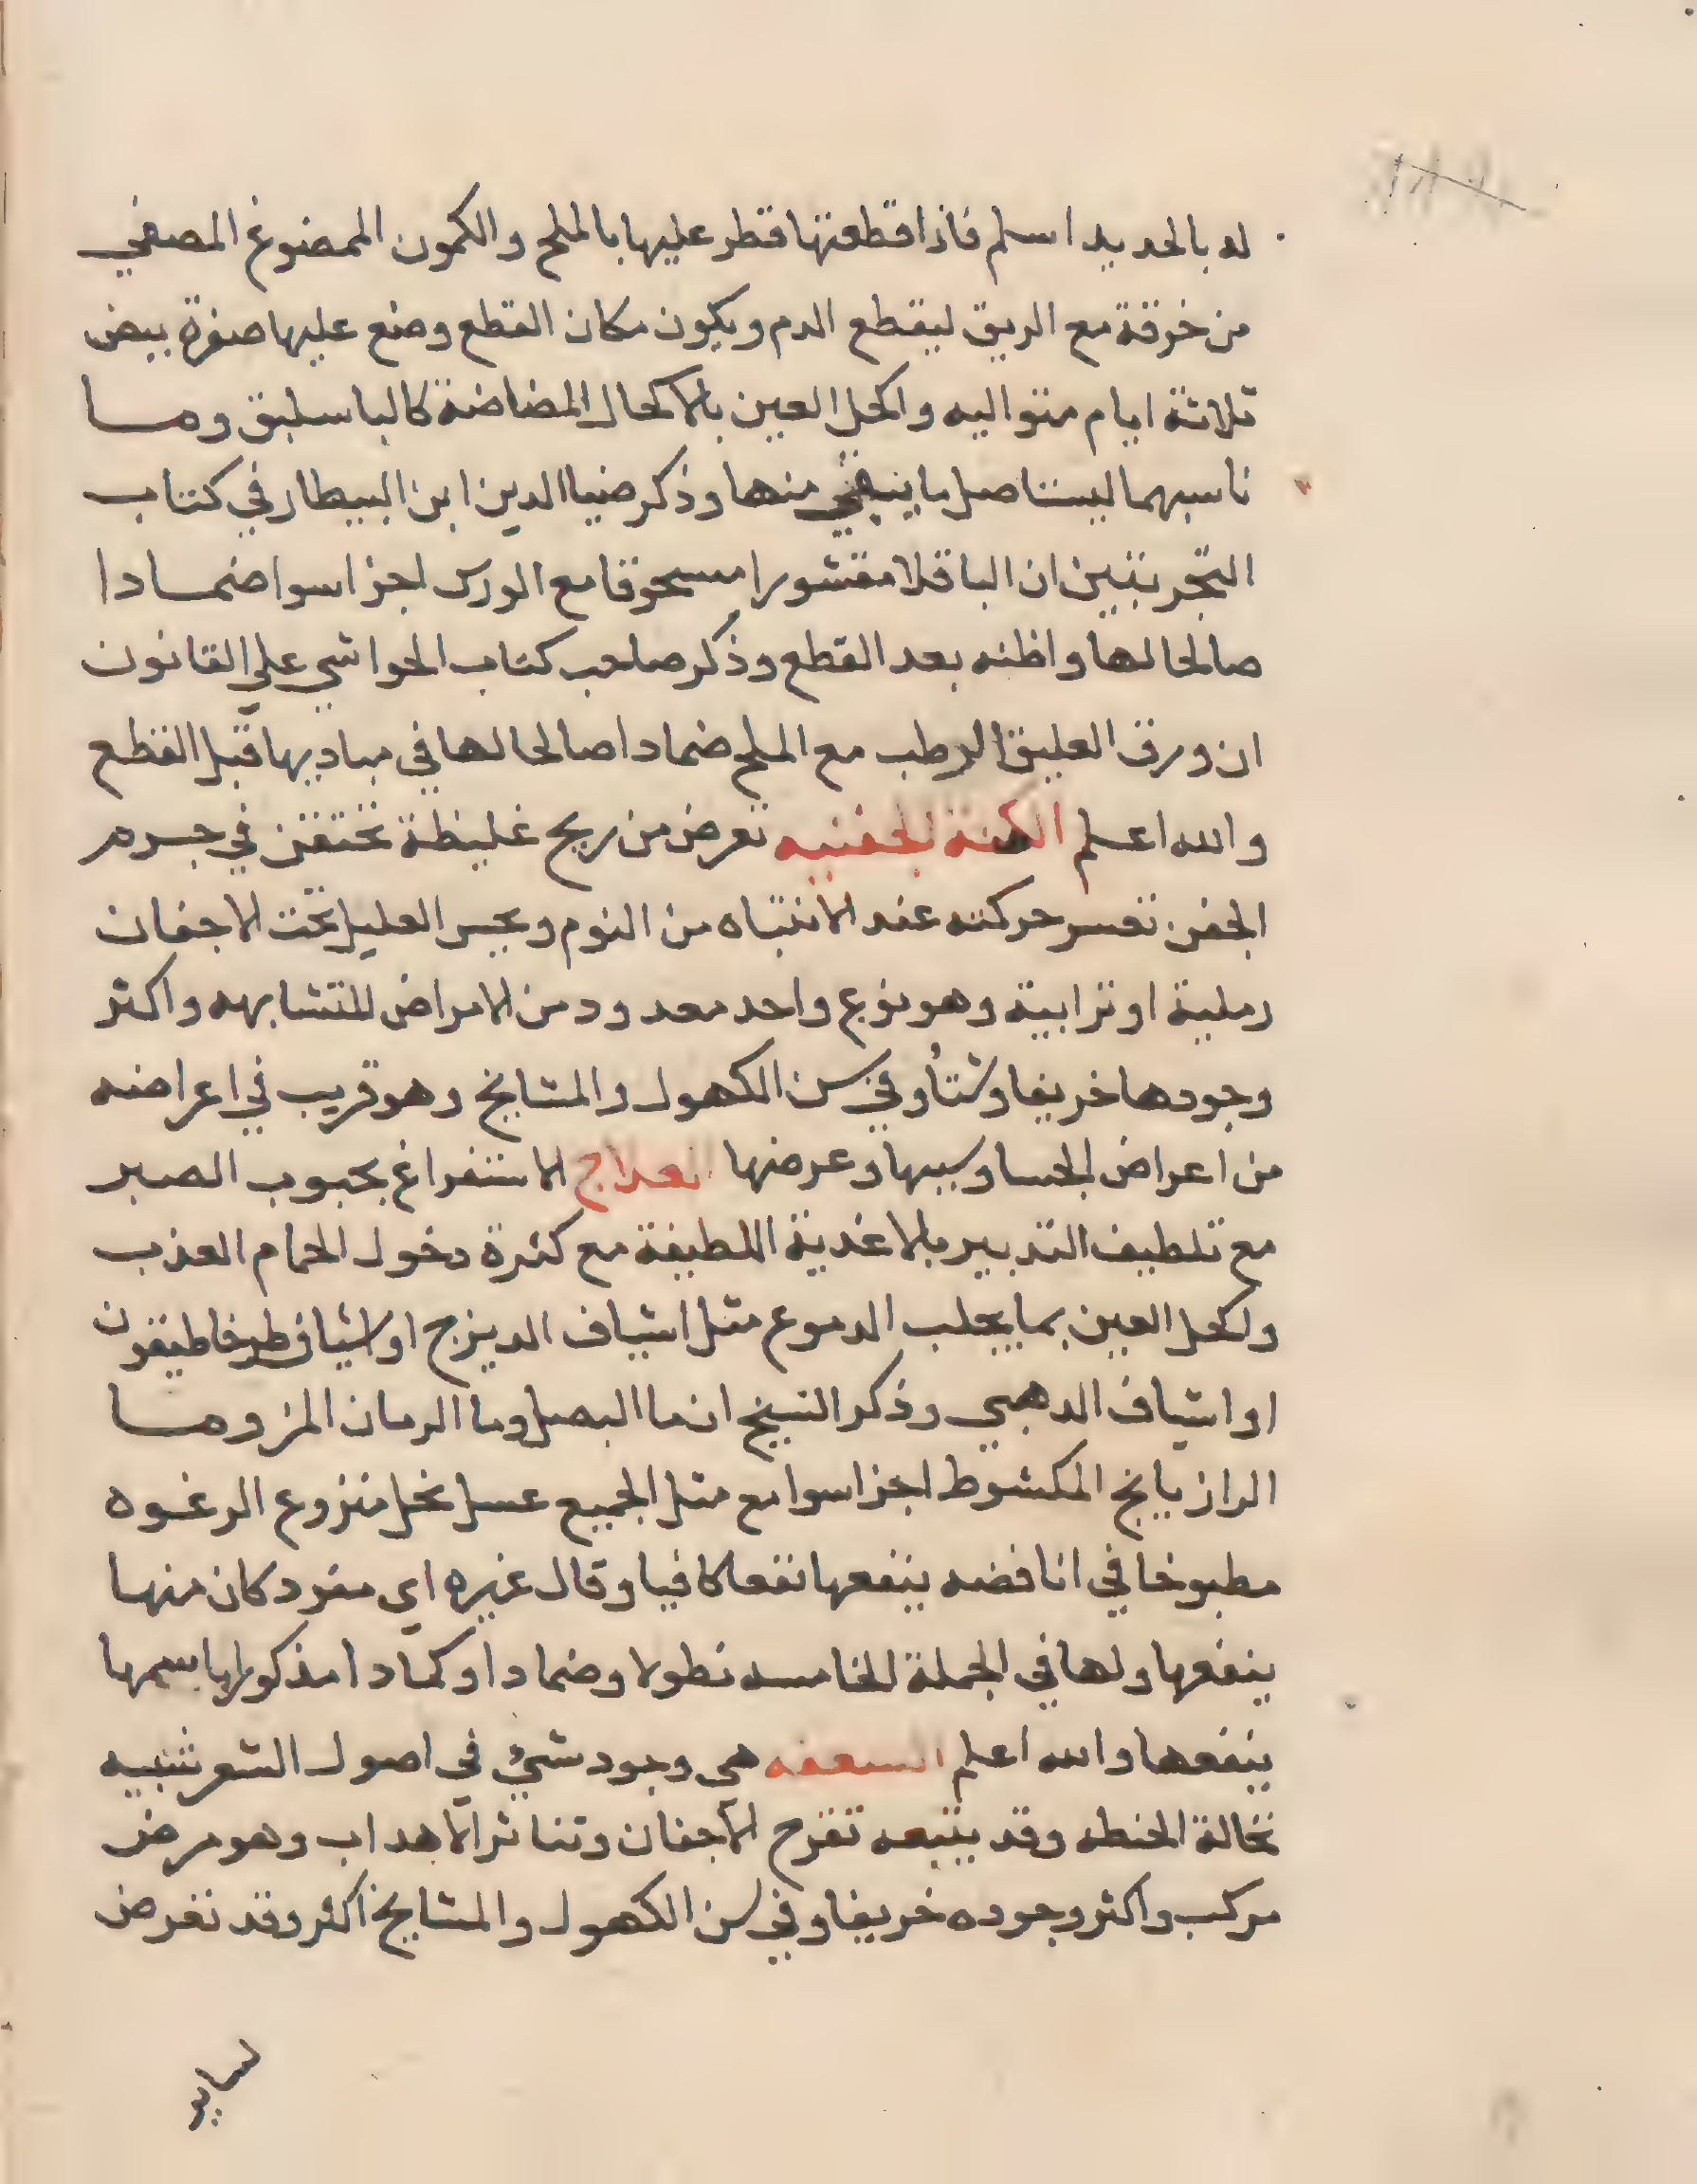 له بالحديد اسلم فاذا قطعتها قطر عليها بالملح والكمون الممضوغ المصفي
من خرقة مع الريق ليقطع الدم ويكون مكان القطع وضع عليها صفرة بيض
ثلاثة ايام متواليه واكحل العين بالاكحال المضاضة كالباسليق وما
ناسبهما ليستاصل ما ينبغي منها وذكر ضيا الدين ابن البيطار في كتاب
التجربتين ان الباقلا مقشورا مسحوقا مع الورس اجزا سوا ضمادا
صالحا لها واظنه بعد القطع وذكر صاحب كتاب الحواشي علي القانون
ان ورق العليق الرطب مع الملح ضمادا صالحا لها في مباديها قبل القطع
والله اعلم الكمنة الجفنيه تعرض من ريح غليظة تختقن في جرم
الجفن تعسر حركته عند الانتباه من النوم ويحس العليل تحت الاجفان
رملية او ترابية وهو نوع واحد معدود من الامراض المتشابهه واكثر
وجودها خريفا وشتأ وفي سن الكهول والمشايخ وهو قريب في اعراضه
من اعراض الجسا وسببها وعرضها العلاج الاستفراغ بحبوب الصبر
مع تلطيف التدبير بالاغذية اللطيفة مع كثرة دخول الحمام العذب
واكحل العين بما يجلب الدموع مثل اشياف الديزج او اشياف طرخاطيقون
او اشياف الدهجي وذكر الشيخ ان ما البصل وما الرمان المز وما
الرازيانج المكشوط اجزا سوا مع مثل الجميع عسل نحل منزوع الرغوه
مطبوخا في انا فضه ينفعها نفعا كافيا وقال غيره اي مفرد كان منها
ينفعها ولها في الجملة الخامسه نطولا وضمادا وكمادا مذكورا باسمها
ينفعها والله اعلم السعفه هي وجود شئ في اصول الشعر شبيه
نخالة الحنطه وقد يتبعه تقرح الاجفان وتناثر الاهداب وهو مرض
مركب واكثر وجوده خريفا وفي سن الكهول والمشايخ اكثر وقد تعرض